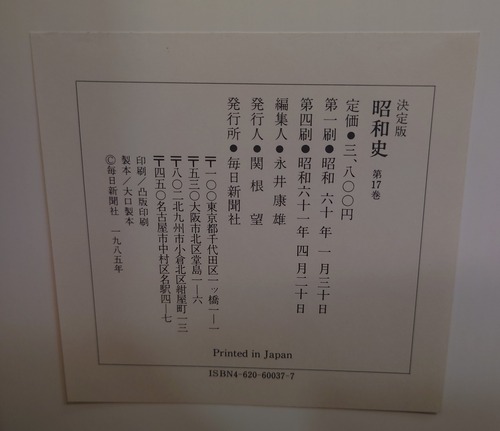 決定版
昭和史 第17巻
定価●三、八〇〇円
第一刷●昭和 六十 年 一 月三十日
第四刷●昭和六十一年 四 月二十日
編集人●永井康雄
発行人●関根 望
発行所●毎日新聞社
〒一〇〇東京都千代田区一ッ橋一―一
〒五三〇大阪市北区堂島一―六
〒八〇二北九州市小倉北区紺屋町一三
〒四五〇名古屋市中村区名駅四―七
印刷/凸版印刷
製本/大口製本
©毎日新聞社 一九八五年
Printed in Japan
ISBN4-620-60037-7